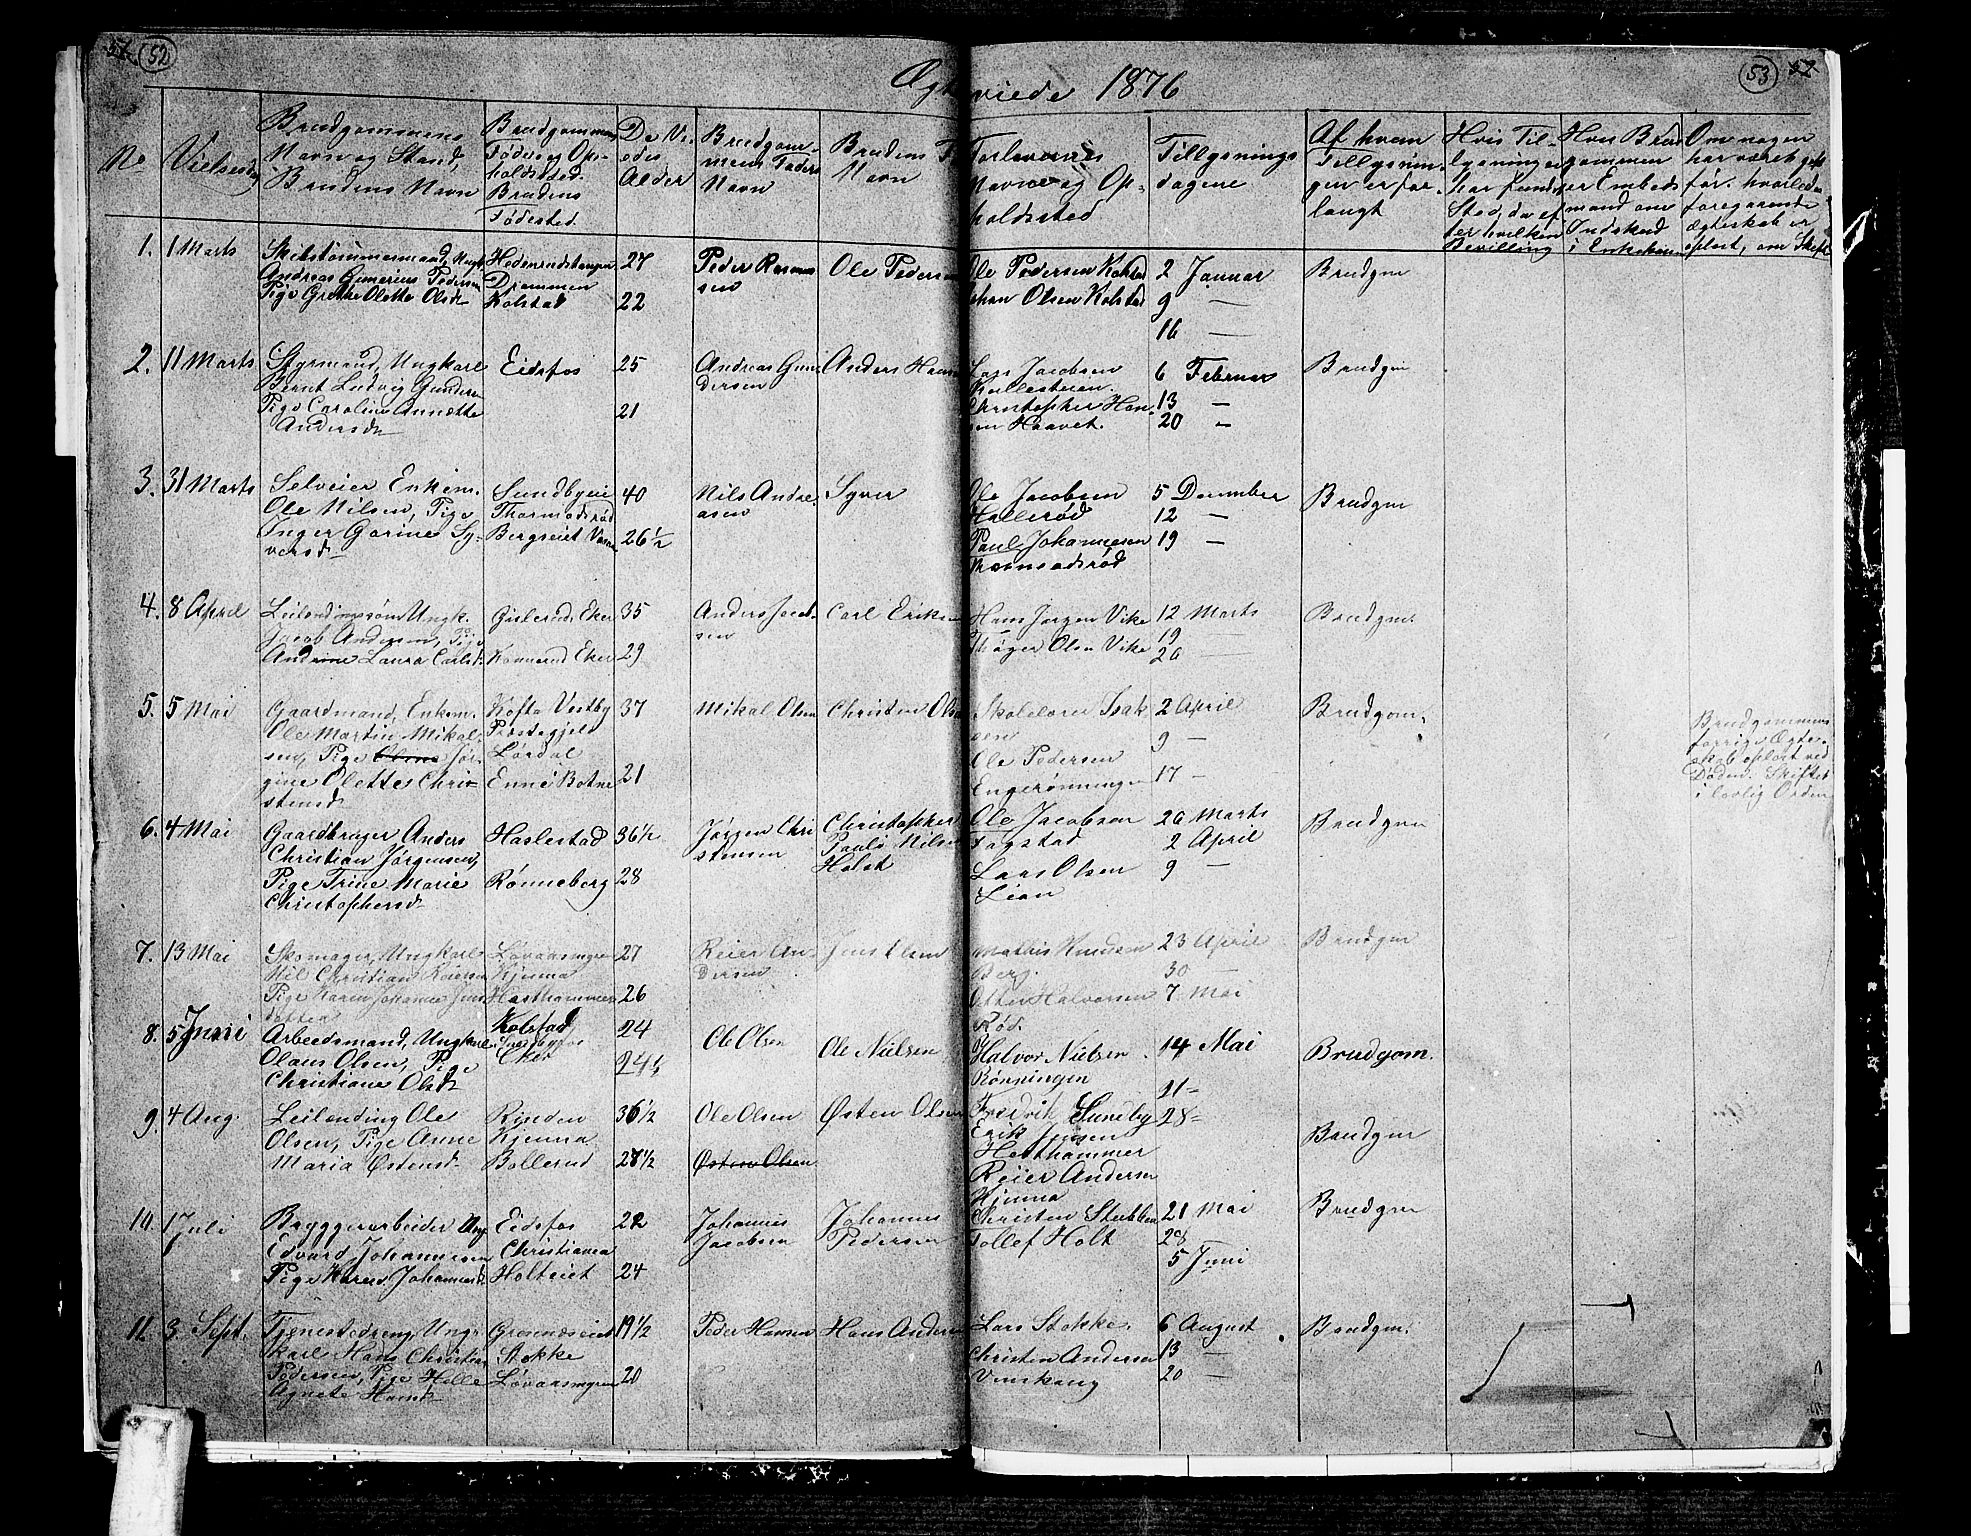 52
53
Ægteviede 1876
No
Vielsesdag
Brudgommens
Navn og Stand,
Brudens Navn
Brudgommens
Fødes og Op-
holdssted.
Brudens
Fødested.
De Vi-
edes
Alder
Brudgom-
mens Faders
Navn
Brudens F
Navn
Forlovernes
Navne og Op-
holdssted
Tillysnings
dagene
Af hvem
Tillysnin-
gen er for-
langt
Hvis Til-
lysninger
har fundet
Sted, da ef
ter hvilken
Bevilling
Hvis Brud
gommen
er Embeds
mand om
Indskud
i Enkekassen
Om nogen
har været gift
før, hvorledes
foregaaende
Ægteskab er
opløst, om Skifte
1. 1 Marts
Andreas Gunerius Pedersen
Pige Grethe Olette Olsd
Drammen
Kolstad
27
22
Peder Rasmus
sen
Ole Pedersen
Ole Pedersen Kolstad
Johan Olsen Kolstad
2 Januar
9 —
16 —
Brudgm
2. 11 Marts
Styrmand, Ungkarl
Bernt Ludvig Gundersen
Pige Caroline Annette
Andersdr
Eidsfos
25
21
Andreas Gun-
dersen
Anders Hansen
Lars Jacobsen
Christopher Han-
sen Haavet.
6 Februar
13 —
20 —
Brudgm
3. 31 Marts
Selveier Enkem.
Ole Nilsen, Pige
Inger Gorine Sy-
versd
Sundbyeie
Thormodsrød
Bergseiet
40
26 1/2
Nils Andre
asen
Syver
Ole Jacobsen
Hallerød
Paul Johannesen
5 December
12 —
19 —
Brudgm
4. 8 April
Leilendingssøn Ungk.
Jacob Andersen, Pige
Andrine Laura Carlsd.
Eker
Eker
35
29
Anders Jacob-
sen
Carl Eriksen
Hans Jørgen Vike
Olsen Vike
12 Marts
19 —
26
Brudgm.
5. 5 Mai
Gaardmand, Enkem.
Ole Martin Mikal-
sen, Pige Jør-
gine Olette Chri-
stensd
Vestby
Præstegjeld
Botne
37
21
Mikal Olsen
Christen Olsen
Skolelærer Isak-
sen
Ole Pedersen
2 April
9 —
17 —
Brudgom.
Brudgommens
forrige Ægte-
skab opløst ved
Døden. Skiftet
i lovlig Orden
6. 4 Mai
Gaardbruger Anders
Christian Jørgensen,
Pige Trine Marie
Christophersd
Haslestad
Rønneberg
36 1/2
28
Jørgen Chri
stensen
Christopher
Pauls Nilsen
Holst
Ole Jacobsen
Fagstad
Lars Olsen
Lian
26 Marts
2 April
9 —
Brudgm
7. 13 Mai
Skomager, Ungkarl
Nil Christian Reiersen
Pige Karen Johanne Jens
datter
Løvaasmyren
Kjenna
Hesthammer
27
26
Reier An-
dersen
Jens Olsen
Mathis Knudsen
Berg.
Otter Halvorsen
Rød.
23 April
30 —
7 Mai
Brudgm
8. 5 Juni
Arbeidsmand, Ungkarl
Olaus Olsen, Pige
Christiane Olsdr
Kolstad,
Eker
24
24 1/2
Ole Olsen
Ole Nielsen
Halvor Nielsen
Rønningen
Fredrik Sundby
14 Mai
21 —
28 —
Brudgom.
9. 4 Aug
Leilending Ole
Olsen, Pige Anne
Maria Østensd
Rinden
Kjenna
Bollerud
36 1/2
28 1/2
Ole Olsen
Østen Olsen
Østen Olsen
Erik Jensen
Hesthammer
Reier Andersen
Kjenna
Brudgm
10. 1 Juli
Bryggerarbeider Ung
Edvard Johannessen
Pige Karen Johannesd
Eidsfos
Christiania
Holteiet
22
24
Johannes
Jacobsen
Johannes
Pedersen
Christen Stubben
Tollef Holt
21 Mai
28
5 Juni
Brudgm
11. 3 Sept.
Tjenestedreng, Ung-
karl Hans Christian
Pedersen, Pige Helle
Agnete Hansd
Grosnæseiet
Stokke
Løvaasmyren
19 1/2
20
Peder Hansen
Hans Andersen
Lars Stokke.
Christen Andersen
6 August
13 —
20 —
Brudgm.